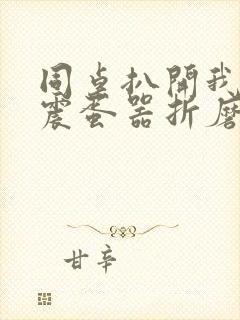 同桌扒開我
震蛋器折磨
甘辛